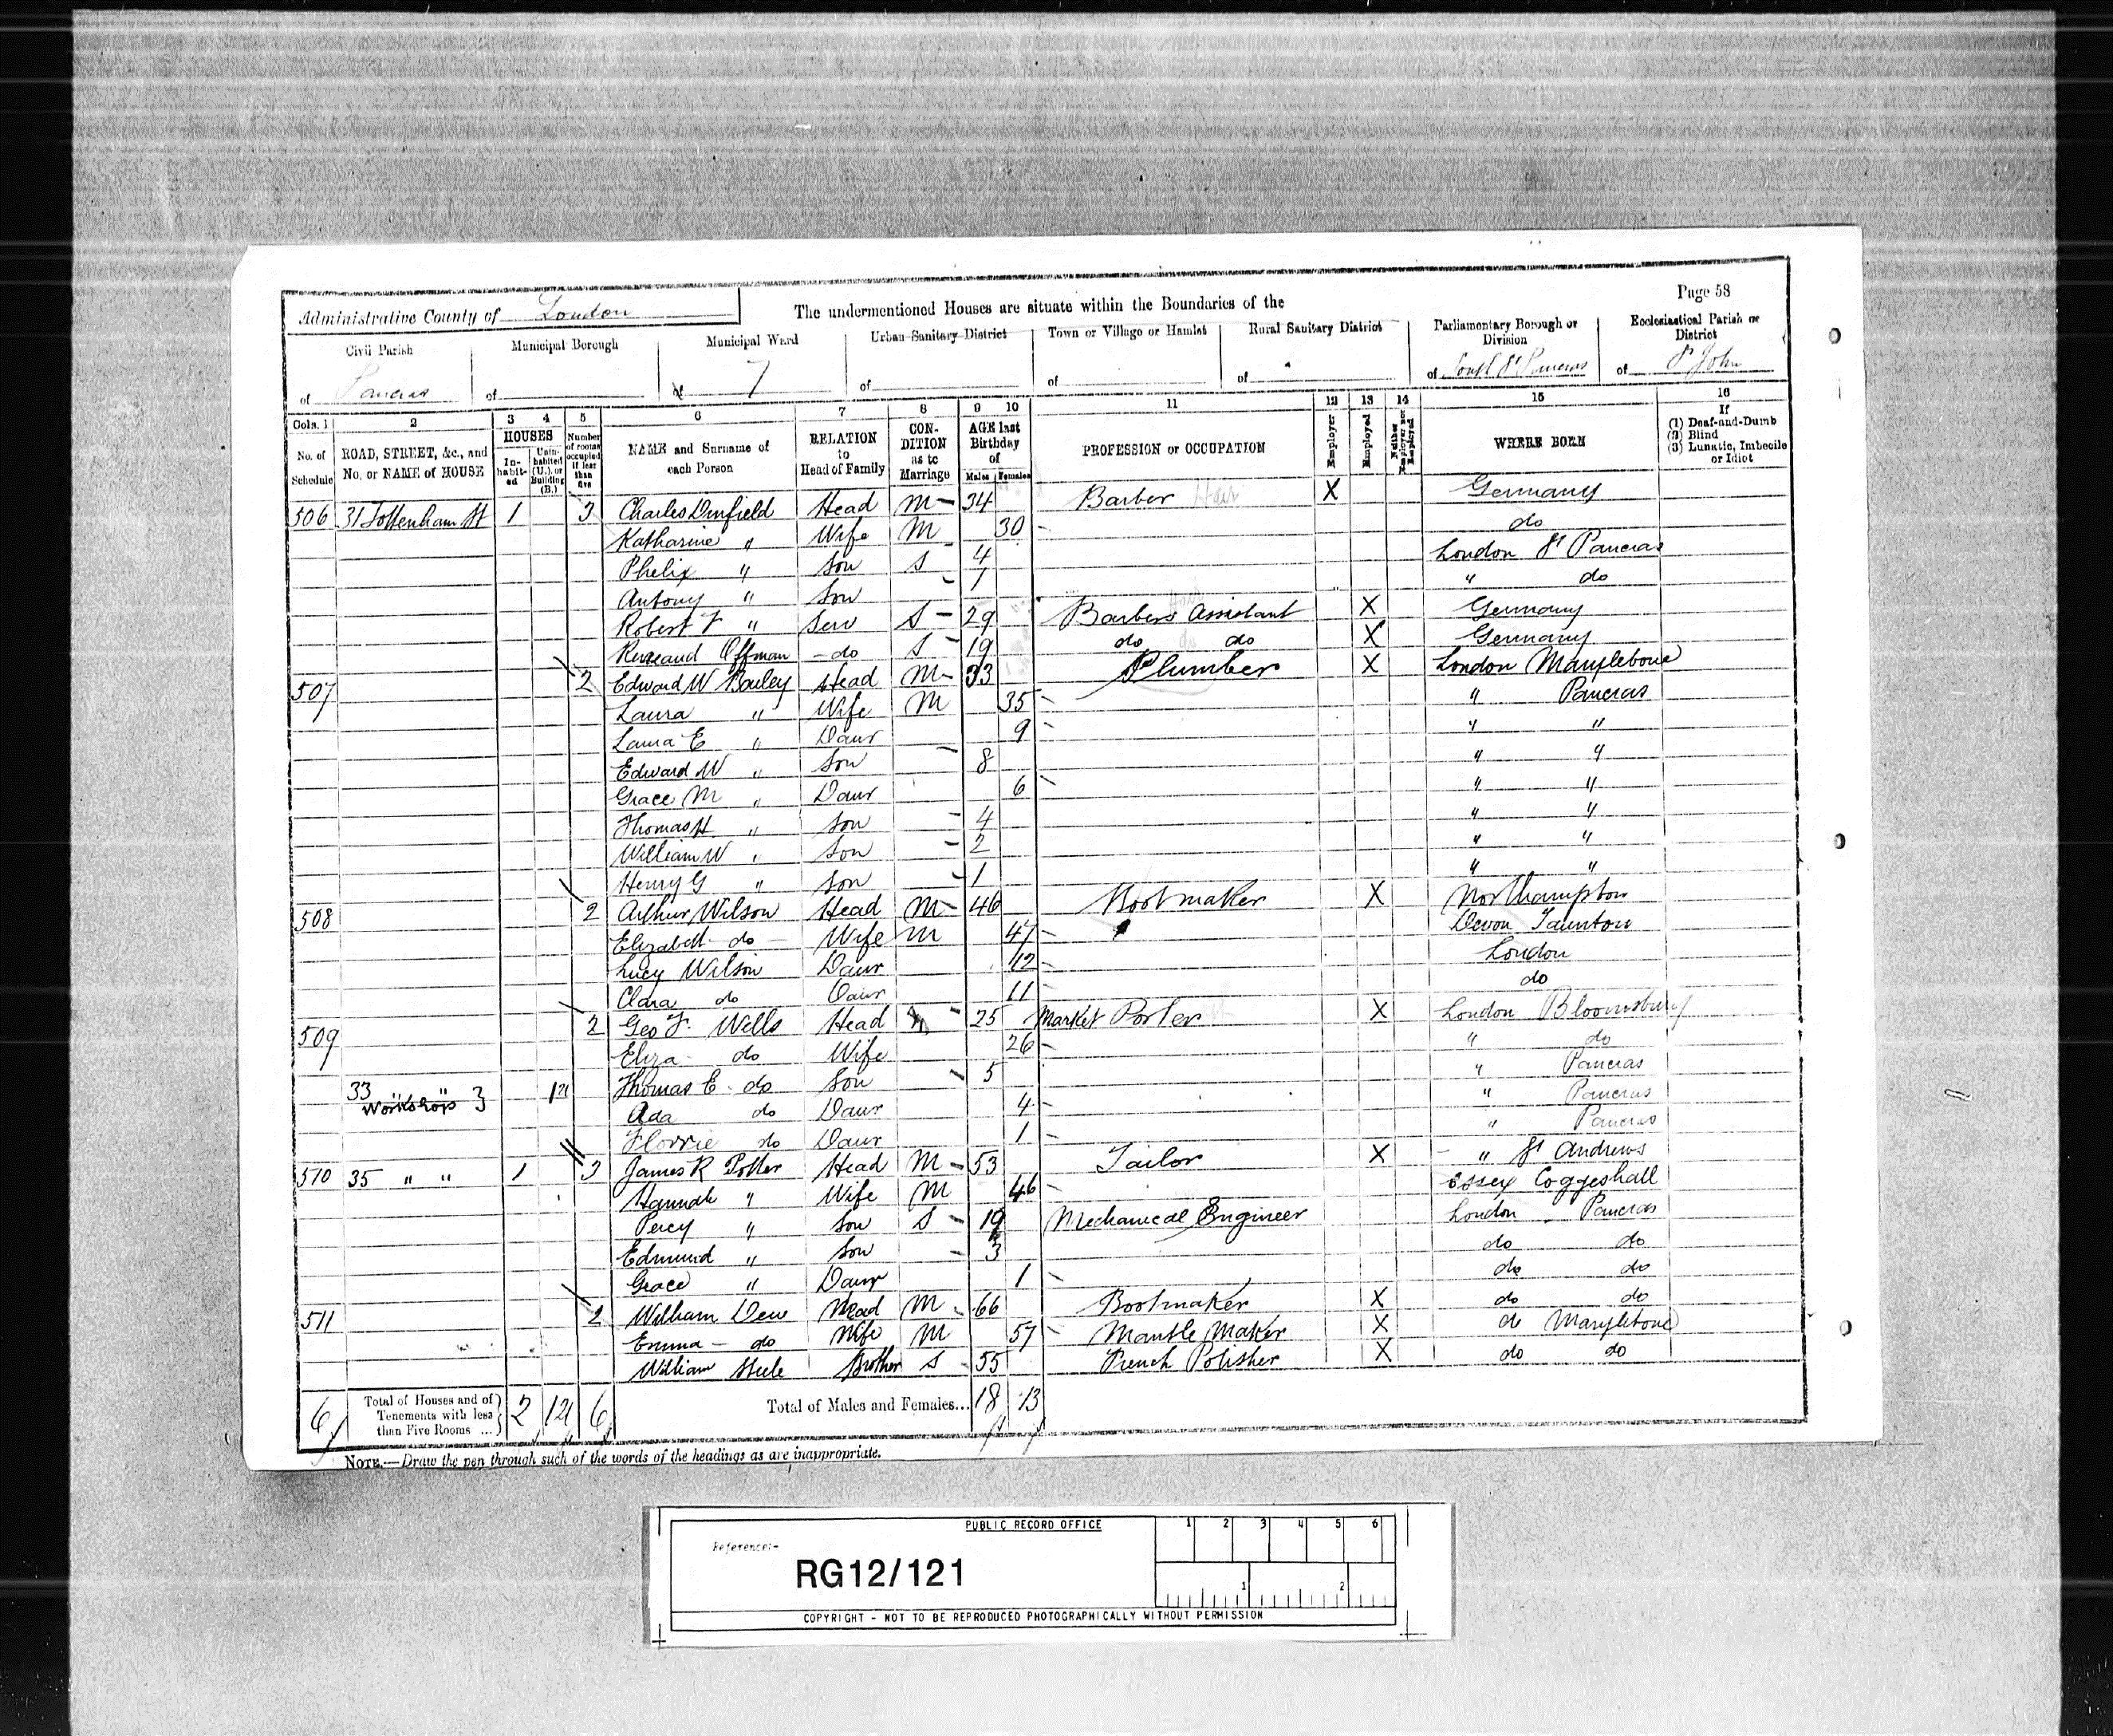 Page 58
Administrative County of London
The undermentioned Houses are situate within the Boundaries of the
Civil Parish of Pancras
Municipal Borough of
Municipal Ward of 7
Urban Sanitary District of
Town or Village or Hamlet of
Rural Sanitary District of
Parliamentary Borough or Division of South St Pancras
Ecclesiastical Parish or District of St John
Cols. 1 2 3 4 5 6 7 8 9 10 11 12 13 14 15 16
No. of Schedule
ROAD, STREET, &c., and No. or NAME of HOUSE
HOUSES
In-habit-ed
Unin-habited (U.), or Building (B.)
Number of rooms occupied if less than five
NAME and Surname of each Person
RELATION to Head of Family
CON-DITION as to Marriage
AGE last Birthday of
Males Females
PROFESSION or OCCUPATION
Employer
Employed
Neither Employer nor Employed
WHERE BORN
If (1) Deaf-and-Dumb (2) Blind (3) Lunatic, Imbecile or Idiot
506 31 Tottenham St 1 3 Charles Dinfield Head M 34 Barber Hair X Germany
Katharine " Wife M 30 do
Phelix " Son S 4 London St Pancras
Antony " Son 1 " do
Robert F " Serv S 29 Barbers Assistant X Germany
Offman do S 19 do do X Germany
507 2 Edward W Bailey Head M 33 Plumber X London Marylebone
Laura " Wife M 35 " Pancras
Laura E " Daur 9 " "
Edward W " Son 8 " "
Grace M " Daur 6 " "
Thomas H " Son 4 " "
William W " Son 2 " "
Henry G " Son 1 " "
508 2 Arthur Wilson Head M 46 Bootmaker X Northampton
Elizabeth do Wife M 47 Devon Taunton
Lucy Wilson Daur 12 London
Clara do Daur 11 do
509 2 Geo F. Wells Head 25 Market Porter X London Bloomsbury
Eliza do Wife 26 " do
33 " " Thomas E do Son 5 " Pancras
Workshop } 1 Ada do Daur 4 " Pancras
Florrie do Daur 1 " Pancras
510 35 " " 1 3 James R Potter Head M 53 Tailor X " St Andrews
Hannah " Wife M 46 Essex Coggeshall
Percy " Son S 19 Mechanical Engineer London Pancras
Edmund " Son 3 do do
Grace " Daur 1 do do
511 2 William Dew Head M 66 Bootmaker X do do
Emma do Wife M 57 Mantle Maker X do Marylebone
William Steele Brother S 55 French Polisher X do do
6 Total of Houses and of Tenements with less than Five Rooms ... 2 6 Total of Males and Females... 18 13
NOTE.—Draw the pen through such of the words of the headings as are inappropriate.
PUBLIC RECORD OFFICE
1 2 3 4 5 6
Reference:-
RG12/121
1 2
COPYRIGHT - NOT TO BE REPRODUCED PHOTOGRAPHICALLY WITHOUT PERMISSION